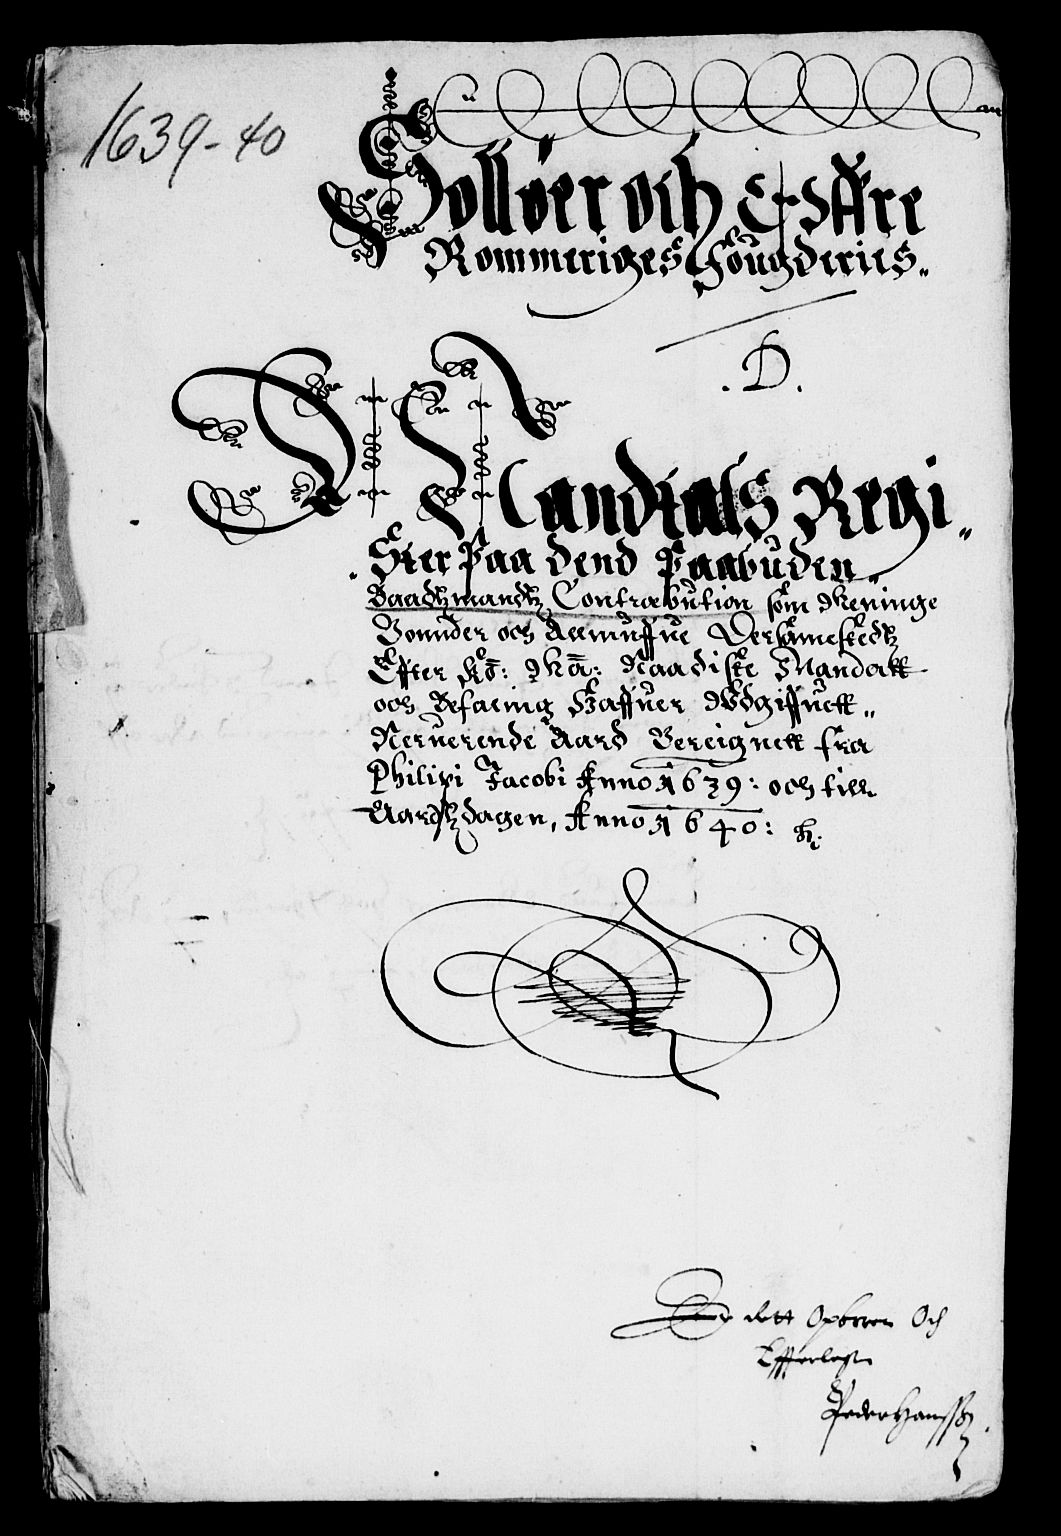 1639-40
Solløer och Østre
Rommeriges Fougderies„
. D.
Mandtals Regi„
ster Paa dend Paabuden„
Baadtzmandtz Contrabution som Meninge
Bønnder och Allmuffue Dersammestedtz
Effter Ko: Ma: Naadiste Mandatt
och Befaling Haffuer Wdgiffuett„
Neruerende Aard Bereignett fra
Philipi Jacobi Anno 1639: och till
Aardtzdagen, Anno 1640:
dett Opboren Och
Efterlest
Peder Hanssøn